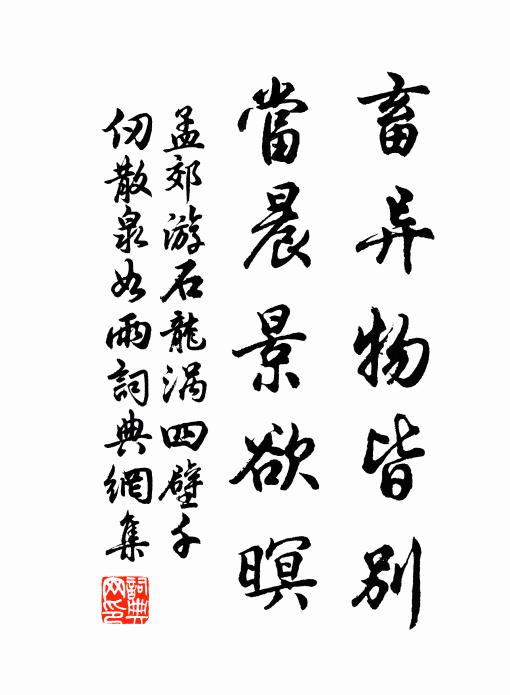 畜异物皆别
當晨景欲暝
孟郊游石龍涡四壁千
仞散泉如雨詞典網集
詞典
网印